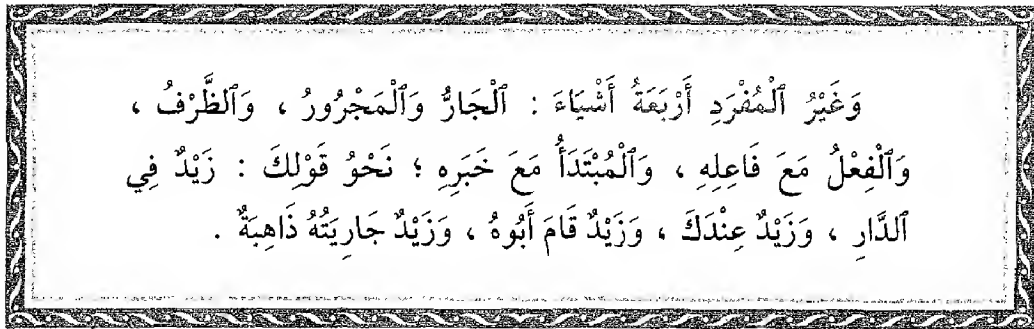 وَغَيْرُ ٱلْمُفْرَدِ أَرْبَعَةُ أَشْيَاءَ : ٱلْجَارُّ وَٱلْمَجْرُورُ ، وَٱلظَّرْفُ ،
وَٱلْفِعْلُ مَعَ فَاعِلِهِ ، وَٱلْمُبْتَدَأُ مَعَ خَبَرِهِ ؛ نَحْوُ قَوْلِكَ : زَيْدٌ فِي
ٱلدَّارِ ، وَزَيْدٌ عِنْدَكَ ، وَزَيْدٌ قَامَ أَبُوهُ ، وَزَيْدٌ جَارِيَتُهُ ذَاهِبَةٌ .